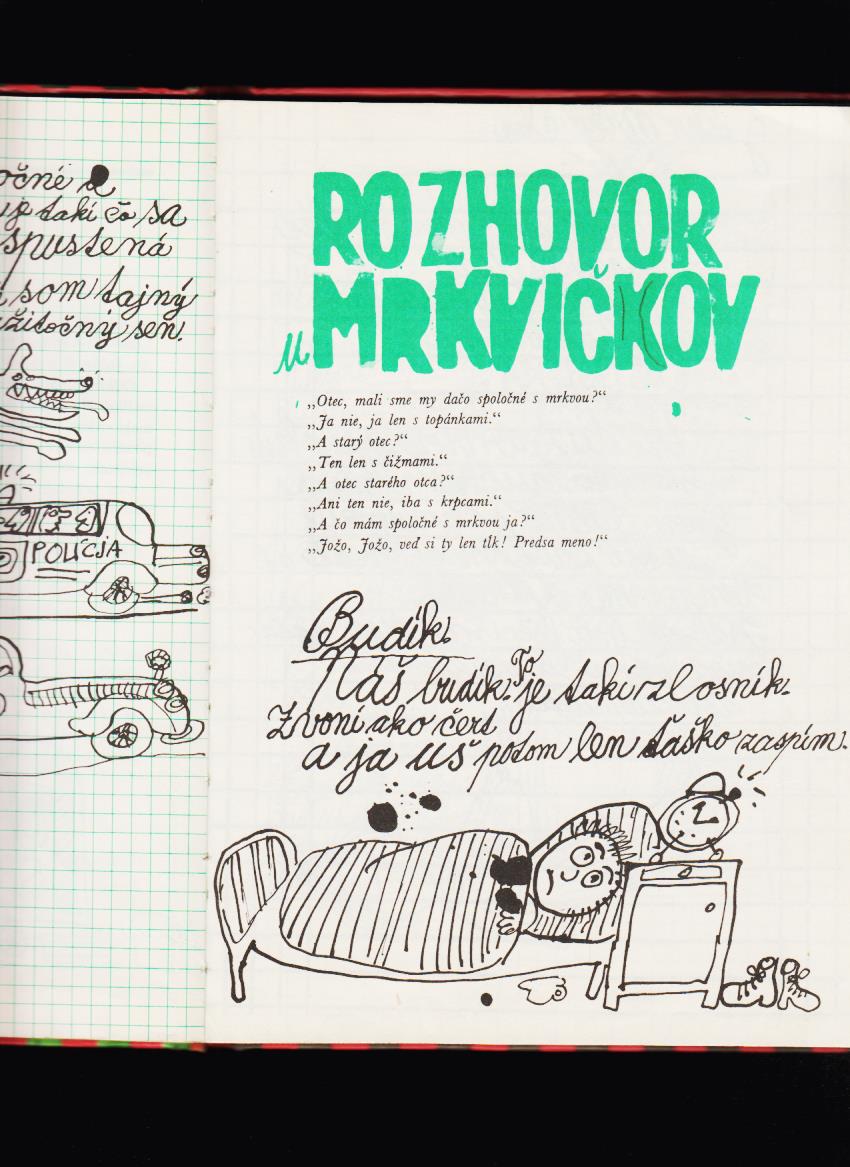 očné a
takí čo sa
spustená
som tajný
žitočný sen.
POLICJA
ROZHOVOR
u MRKVIČKOV
„Otec, mali sme my dačo spoločné s mrkvou?“
„Ja nie, ja len s topánkami.“
„A starý otec?“
„Ten len s čižmami.“
„A otec starého otca?“
„Ani ten nie, iba s krpcami.“
„A čo mám spoločné s mrkvou ja?“
„Jožo, Jožo, veď si ty len tlk! Predsa meno!“
Budík.
Náš budík. To je takí zlosník.
Zvoní ako čert
a ja uš potom len ťaško zaspím.